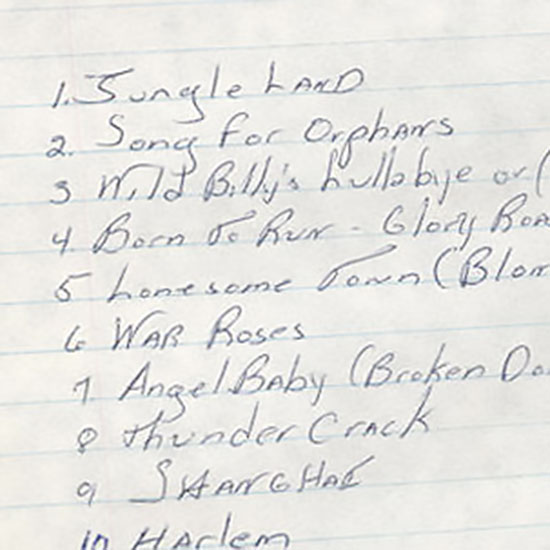 1. Jungle LAND
2. Song for Orphans
3 Wild Billy's Lullabye or (
4 Born To Run - Glory Roa
5 Lonesome Town (Blon
6 WAR Roses
7 Angel Baby (Broken Do
8 thunder Crack
9 SHANGHAI
10 HArlem